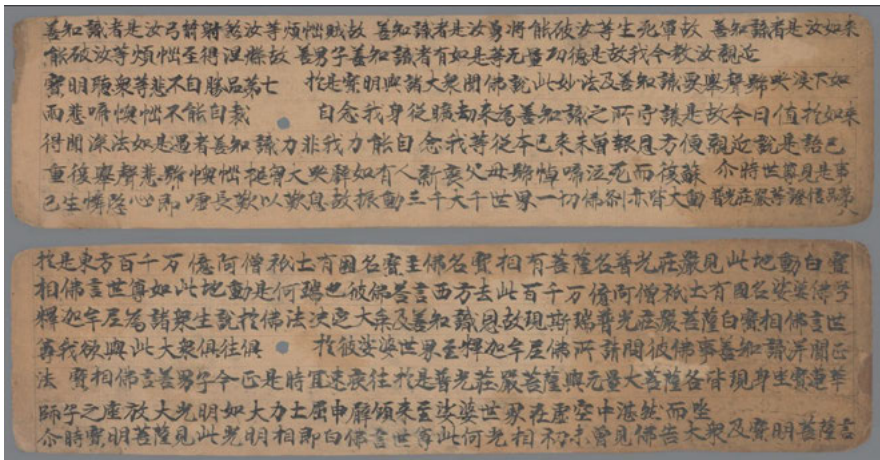 善知識者是汝弓箭射煞汝等煩惱賊故 善知識者是汝勇將能破汝等生死軍故 善知識者是汝如來
能破汝等煩惱至得涅槃故 善男子善知識者有如是等无量功德是故我今教汝親近
寶明聽衆等悲不自勝品第七 於是寶明與諸大衆聞佛說此妙法及善知識要舉聲號哭淚下如
雨悲啼懊惱不能自裁 自念我身從曠劫來為善知識之所守護是故今日值於如來
得聞深法如是遇者善知識力非我力能自念我等從本已來未曾報恩方便親近說是語已
重復舉聲悲號懊惱搥胷大哭辟如有人新喪父母號悼啼泣死而復蘇 尒時世尊見是事
已生憐愍心即噫長歎以歎息故振動三千大千世界一切佛刹亦皆大動 普光莊嚴等證信品第八
於是東方百千万億阿僧祇土有國名寶王佛名寶相有菩薩名普光莊嚴見此地動白寶
相佛言世尊如此地動是何瑞也彼佛荅言西方去此百千万億阿僧祇土有國名娑婆佛号
釋迦牟尼為諸衆生說於佛法決定大乘及善知識恩故現斯瑞普光莊嚴菩薩白寶相佛言世
尊我欲與此大衆俱往俱 於彼娑婆世界至釋迦牟尼佛所請問彼佛事善知識并聞正
法 寶相佛言善男子今正是時宜速疾往於是普光莊嚴菩薩與无量大菩薩各皆現身坐寶蓮華
師子之座放大光明如大力士屈申臂頃來至娑婆世界在虛空中湛然而坐
尒時寶明菩薩見此光明相即白佛言世尊此何光相初未曾見佛告大衆及寶明菩薩言